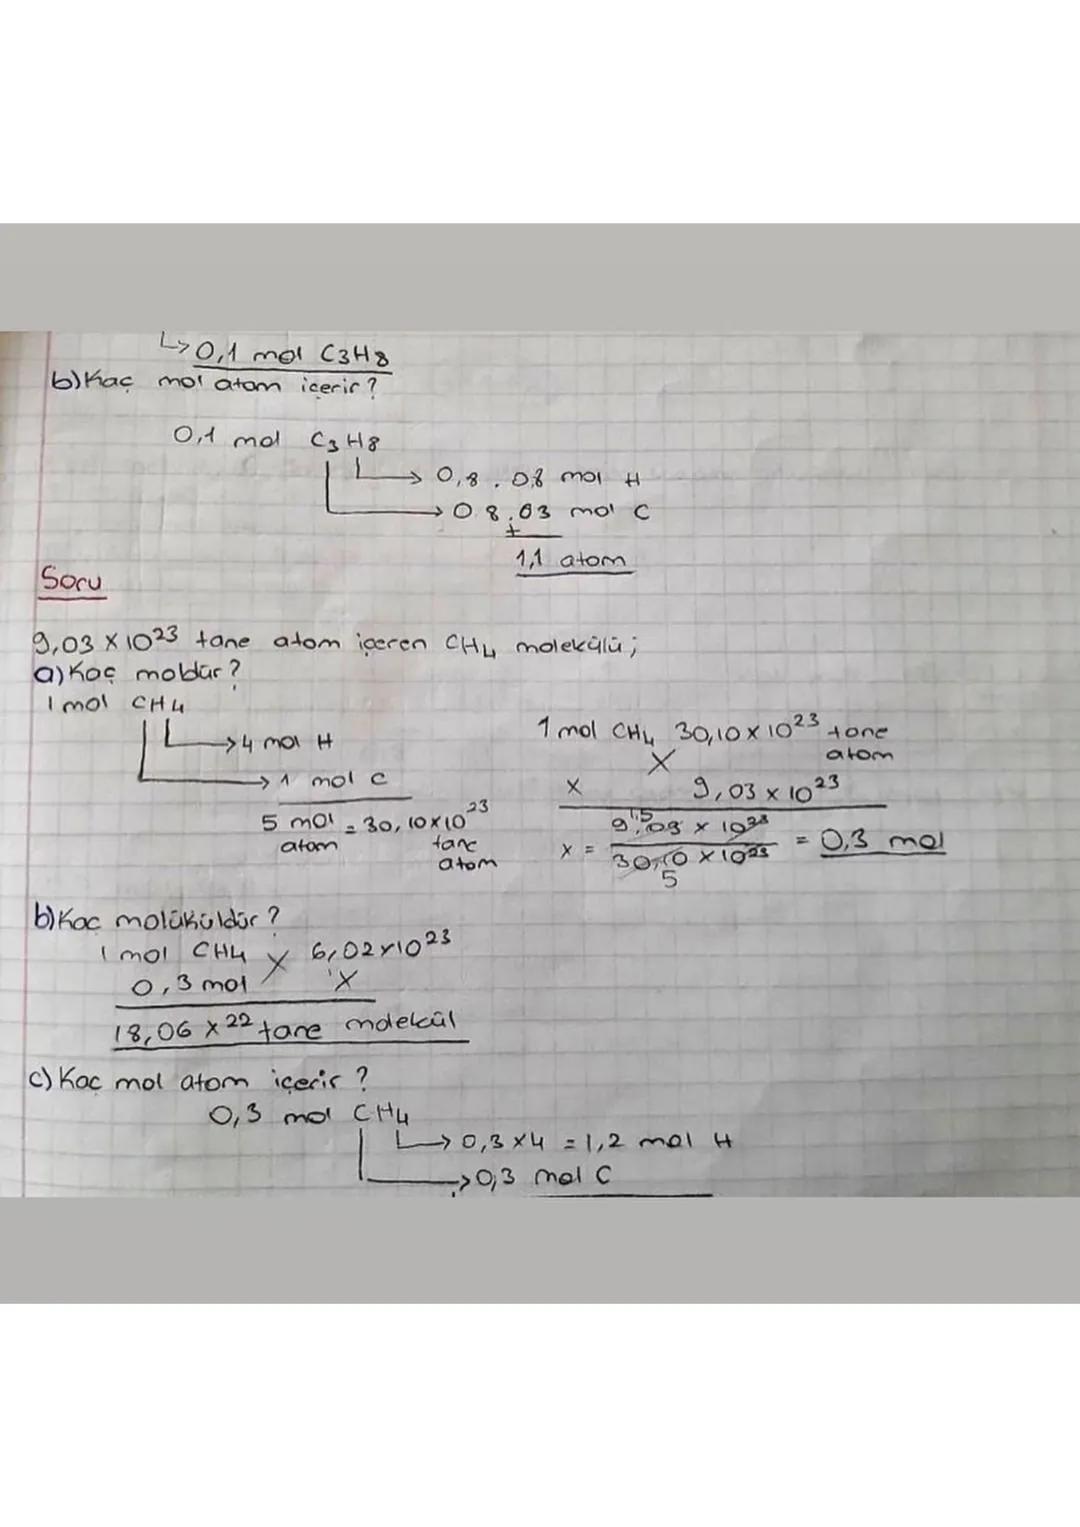 ↳ 0,1 mol C3H8
b) Kaç mol atom içerir?
0,1 mol C3H8
→ 0,8 . 0,8 mol H
→ 0.8.03 mol C
+
1,1 atom
Soru
9,03 x 10^23 tane atom içeren CH4 molekülü;
a) Kaç moldür?
1 mol CH4
→ 4 mol H
→ 1 mol C
5 mol atom = 30,10x10^23 tane atom
1 mol CH4 30,10 x 10^23 tane atom
X
x 9,03 x 10^23
x = 9,03 x 10^23 / 30,10 x 10^23 = 0,3 mol
1,5
5
b) Kaç molüküldür?
1 mol CH4 X 6,02x10^23
0,3 mol X
18,06 x 22 tane molekül
c) Kaç mol atom içerir?
0,3 mol CH4
→ 0,3 x 4 = 1,2 mol H
→ 0,3 mol C